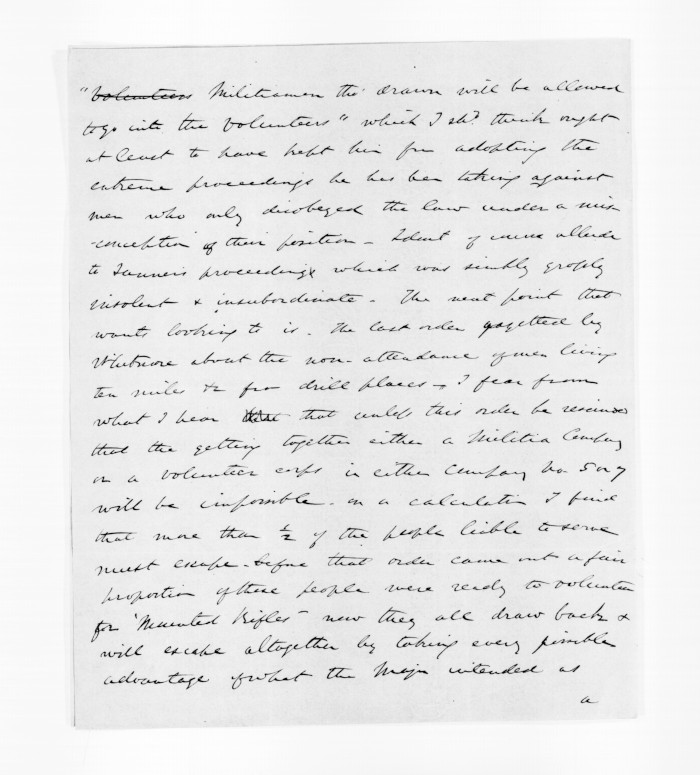 "Volunteers Militiamen tho' drawn will be allowed
to go into the Volunteers" which I shd. think ought
at least to have kept him from adopting the
extreme proceedings he has been taking against
men who only disobeyed the law under a mis
-conception of their position - I dont of course allude
to Tanner's proceedings which was simply grossly
insolent & insubordinate - The next point that
wants looking to is - the last order gazetted by
Whitmore about the non-attendance of men living
ten miles &c from drill places - I fear from
what I hear that unless this order be rescinded
that the getting together either a Militia Company
or a volunteer corps in either Company No. 5 or 7
will be impossible - on a calculation I find
that more than ½ of the people liable to serve
must escape - before that order came out a fair
proportion of these people were ready to volunteer
for 'Mounted Rifles' now they all draw back &
will escape altogether by taking every possible
advantage of what the Major intended as
a